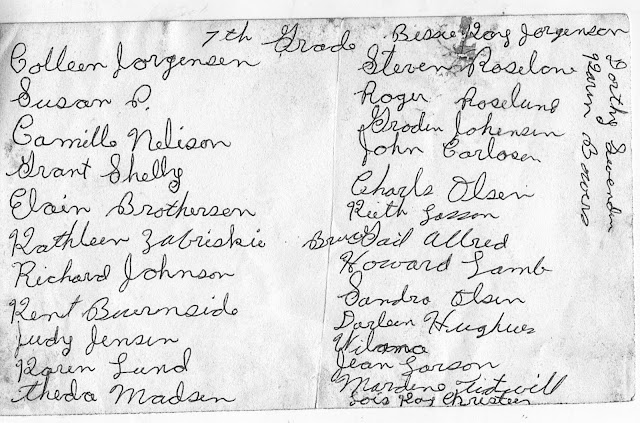 7th Grade
Colleen Jorgensen
Susan P.
Camille Nelison
Grant Shelly
Elain Brothersen
Kathleen Zabriskie
Richard Johnson
Kent Buurnside
Judy Jensen
Karen Lund
Theda Madsen
Bessie Kay Jorgenson
Steven Roselone
Roger Roselund
Groden Johensen
John Carlosen
Charls Olsen
Kieth Lasson
Bruce Gail Allred
Howard Lamb
Sandra Olsen
Darleen Hughues
Wilama
Jean Larson
Mardene Tidwill
Lois Kay Christen
Dorthy Swenden
Karen Bowers